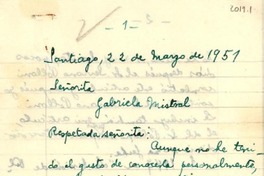 2019.1
- 1 -
Santiago, 22 de Marzo de 1951
Señorita
Gabriela Mistral
Respetada señorita:
Aunque no he teni
do el gusto de conocerla personalmente,